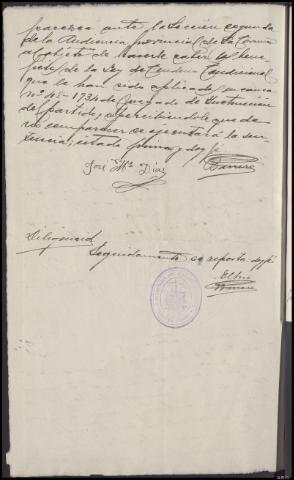 parezca ante la Sección segunda
de la Audiencia provincial de La Coruña
al objeto de hacerle saber los bene-
ficios de la Ley de Condena Condicional
que le han sido aplicados en causa
nº 45-1934 de Juzgado de Instrucción
del partido, apercibiéndole que de
no comparecer se ejecutará la sen-
tencia; estado firma y doy fé
José Mª Díaz
Diligencia
Seguidamente se reporta doy fé